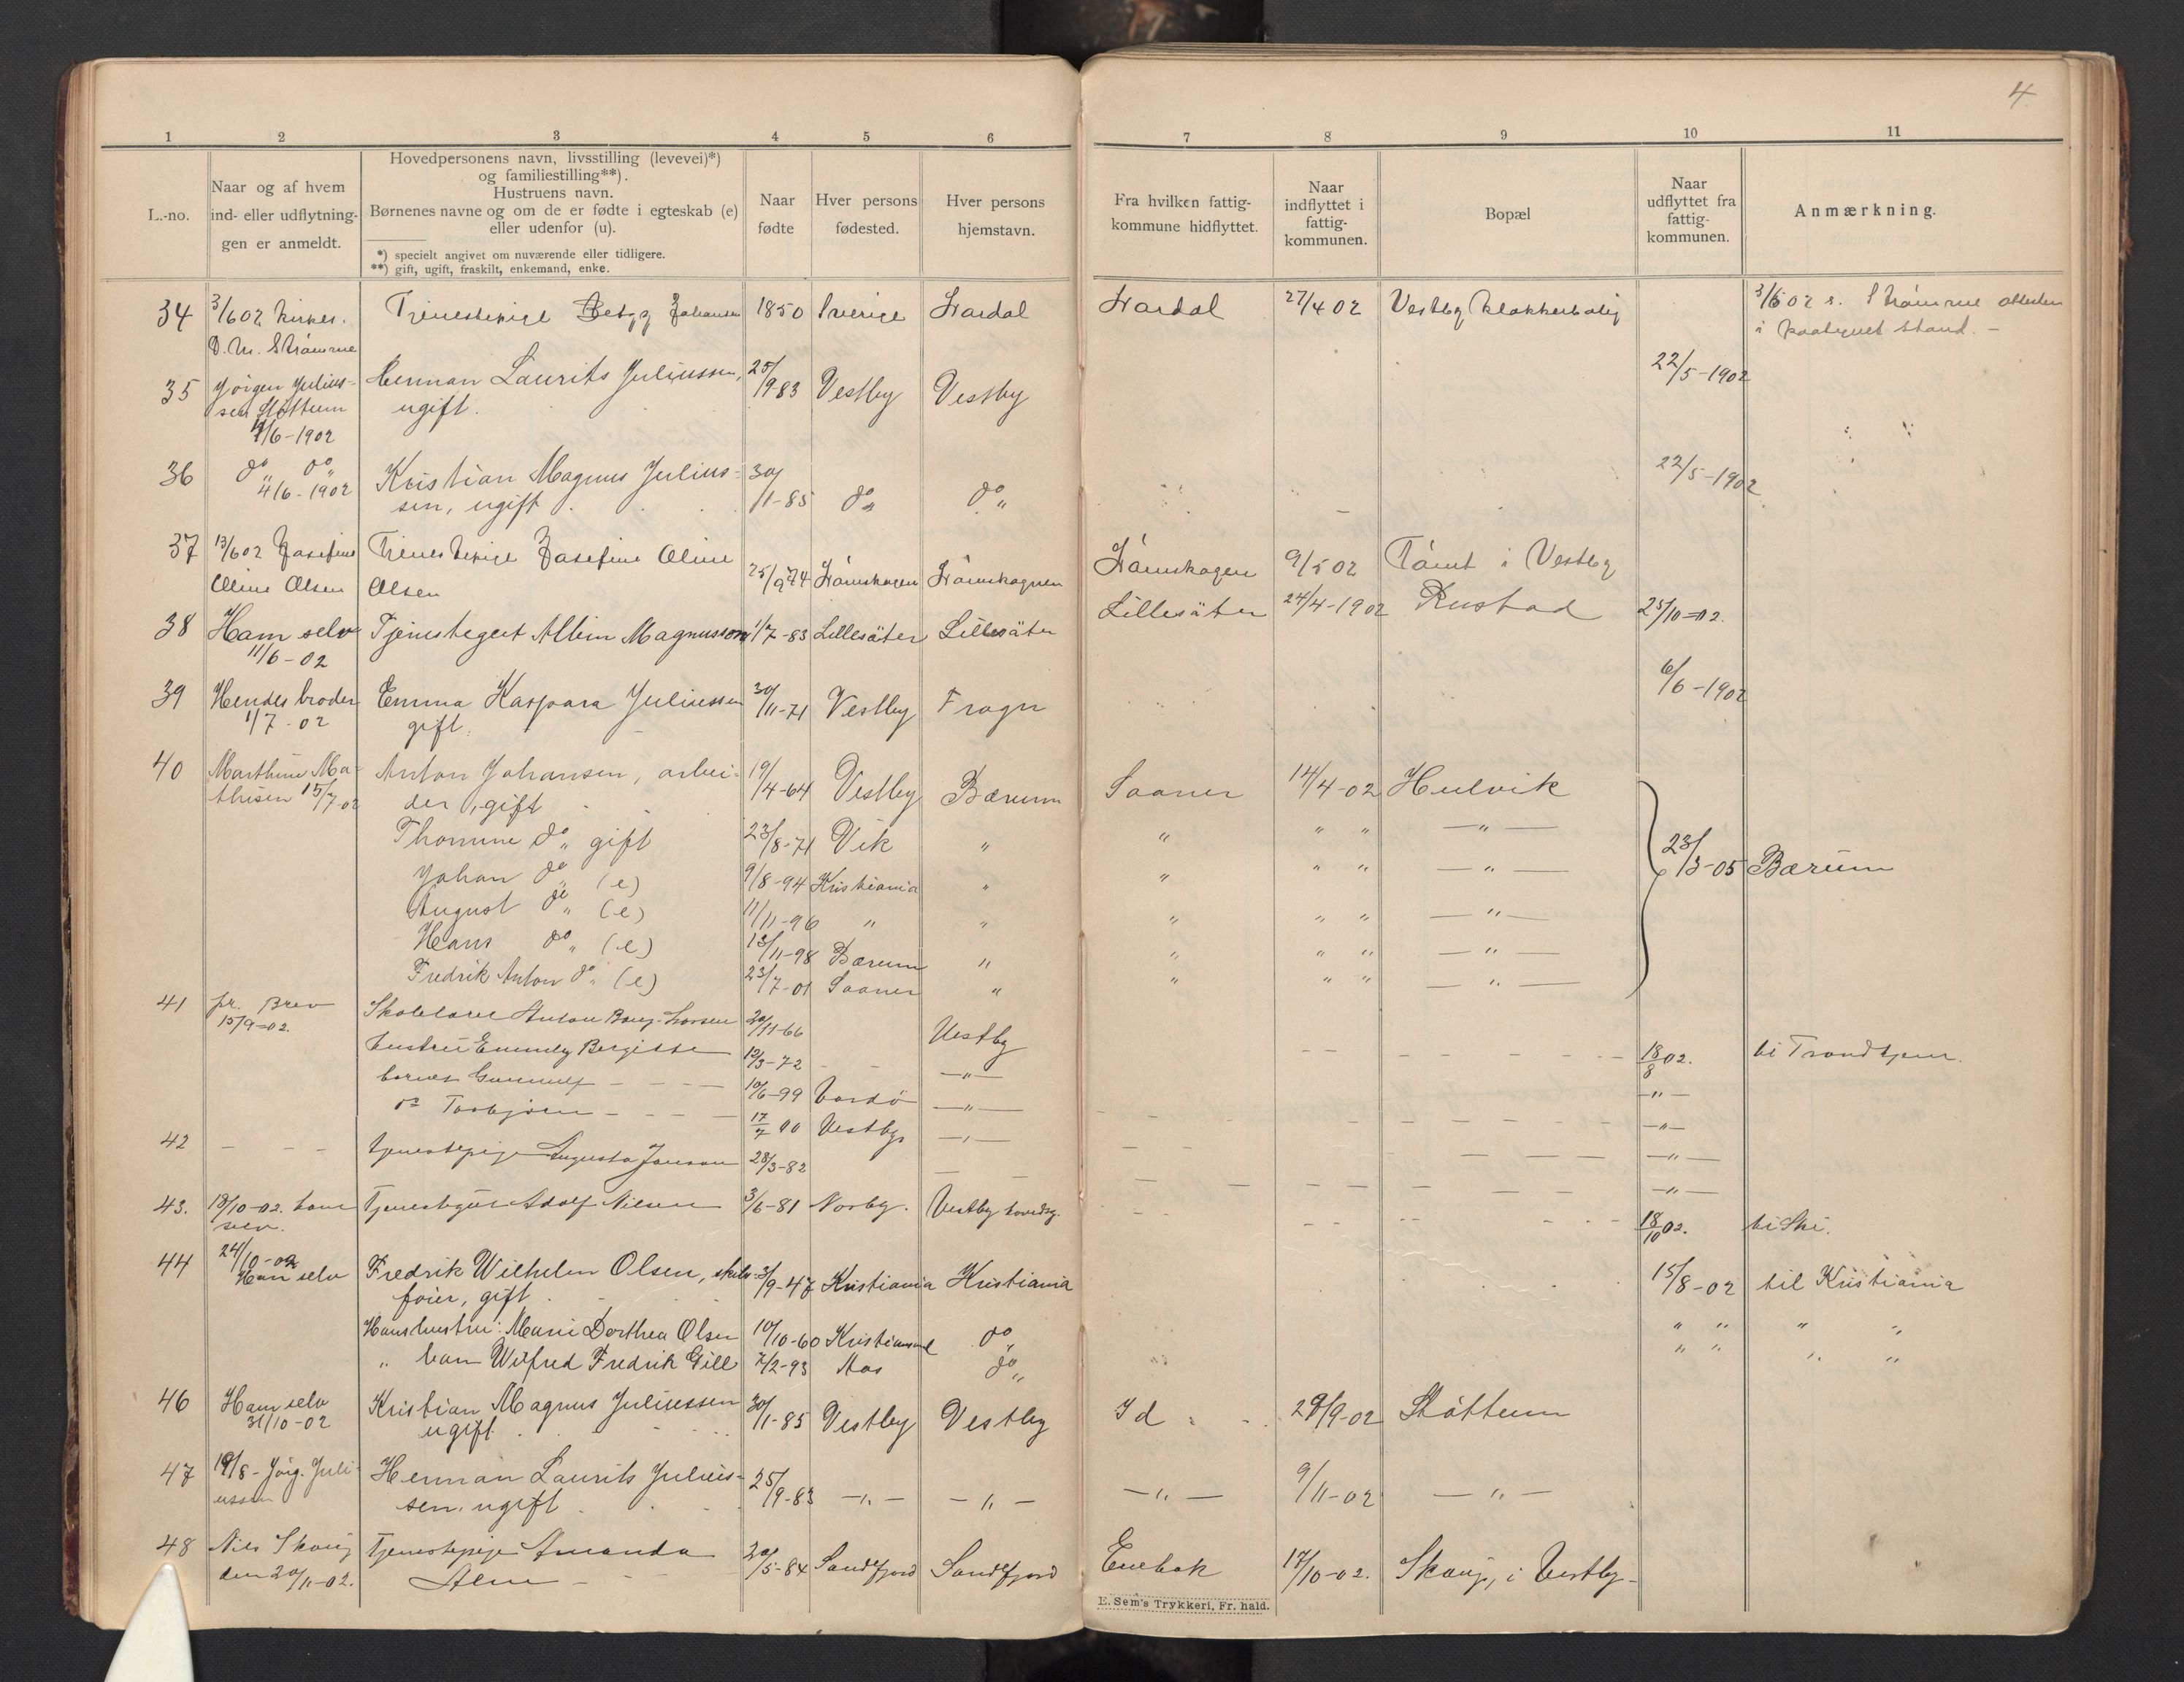 4
1 2 3 4 5 6 7 8 9 10 11
L.-no.
Naar og af hvem
ind- eller udflytning-
gen er anmeldt.
Hovedpersonens navn, livsstilling (levevei)*)
og familiestilling**).
Hustruens navn.
Børnenes navne og om de er fødte i egteskab (e)
eller udenfor (u).
*) specielt angivet om nuværende eller tidligere.
**) gift, ugift, fraskilt, enkemand, enke.
Naar
fødte
Hver persons
fødested.
Hver persons
hjemstavn.
Fra hvilken fattig-
kommune hidflyttet.
Naar
indflyttet i
fattig-
kommunen.
Bopæl
Naar
udflyttet fra
fattig-
kommunen.
Anmærkning.
34 3/6 02 Kirkes. Tjenestepige Johansen 1850 Sverige Hardal Hardal 27/4 02 Vestby klokkerbolig 3/6 02 s. Strømme attesten
D. M. Strømme i stand. —
35 Jörgen Julius- Herman Laurits Juliussen, 25/9-83 Vestby Vestby 22/5-1902
sen Støttum ugift.
4/6-1902
36 do do Kristian Magnus Julius- 30/1-85 do do 22/5-1902
4/6-1902 sen, ugift
37 13/6 02 Josefine Tjenestepige Josefine Oline 25/9 74 Trömskogen 9/5 02 Tömt i Vestby
Oline Olsen Olsen
38 Ham selv Tjenestegut Albin Magnusson 1/7-83 Lillesäter Lillesäter Lillesäter 24/4-1902 Rustad 25/10-02.
11/6-02
39 Hendes broder Emma Kaspara Juliussen 30/11-71 Vestby Frogn 6/6-1902
1/7-02 gift.
40 Marthine Ma- Anton Johansen, arbei- 19/4-64 Vestby Bærum Saaner 14/4-02 Hulvik
thisen 15/7-02 der, gift
Thomine do gift 23/8-71 Vik " " " " —"—
Johan do (e) 9/8-94 Kristiania " " " " —"— 23/3-05 Bærum
August do (e) 11/11-96 " " " " " —"—
Hans do (e) 13/11-98 Bærum " " " " —"—
Fredrik Anton do (e) 23/7-01 Saaner " " " " —"—
41 pr. Brev Skolelærer Anton Larsen 20/11-66 Vestby
15/9-02. hustru Emmely Bergitte 12/3-72 —"— 18/8 02. til Trondhjem.
barnet 10/6-99 Vardö —"— —"—
do Torbjörn 17/7 00 Vestby —"— —"—
42 — — — tjenestepige Augusta Jonson 28/3-82 —"—
43. 18/10-02. ham Tjenestegut Adolf Nilsen 3/6-81 Norby. Vestby hovedsg. 18/10 02. til Ski.
selv.
44 24/10-02 Fredrik Wilhelm Olsen, skils- 3/9-47 Kristiania Kristiania 15/8-02 til Kristiania
Han selv foier, gift
Hans hustru: Marie Dorthea Olsen 10/10-60 Kristiansand do " " " "
" barn Wilfred Fredrik Gill 7/2-93 Aas do " " " "
46 Ham selv Kristian Magnus Juliussen 30/1-85 Vestby Vestby Id 29/9-02 Støttum
31/10-02 ugift
47 19/8- Jörg. Juli- Herman Laurits Julius- 25/9-83 —"— —"— —"— 9/11-02 —"—
ussen sen, ugift
48 Nils Skoug Tjenestepige Amanda 20/5-84 Sandefjord Sandefjord Enebak 17/10-02. Skoug, i Vestby-
den 20/11-02. Alm
E. Sem's Trykkeri, Fr. hald.